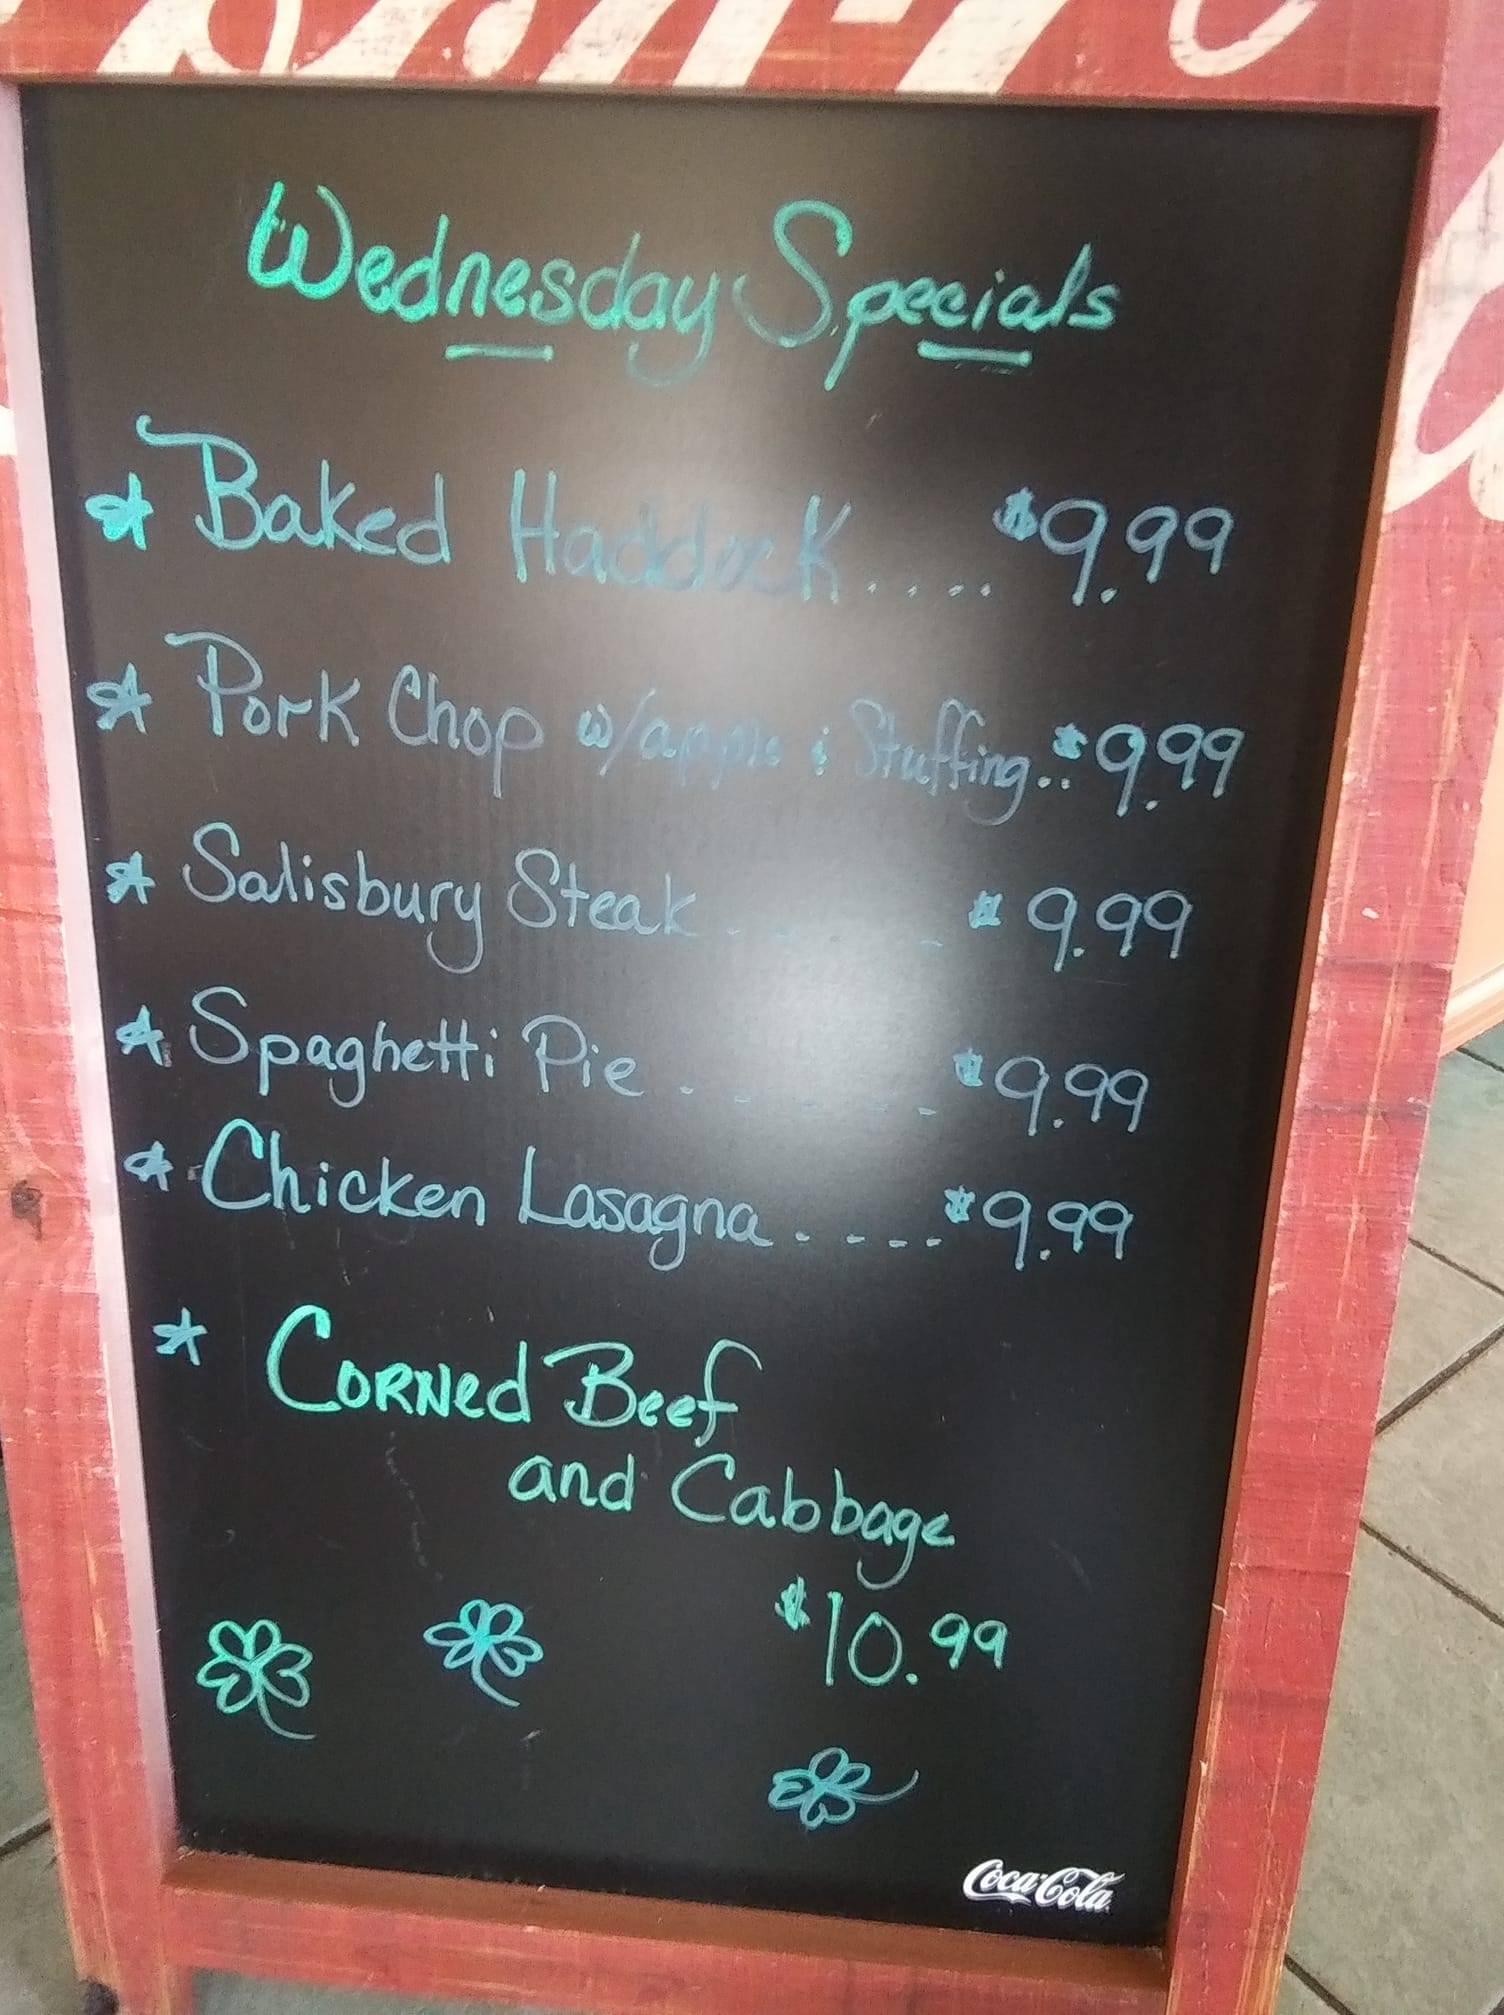 Wednesday Specials
* Baked Haddock..... $9.99
* Pork Chop w/apple & Stuffing... $9.99
* Salisbury Steak - - - - - $9.99
* Spaghetti Pie - - - - - $9.99
* Chicken Lasagna - - - - - $9.99
* Corned Beef
and Cabbage
$10.99
Coca-Cola